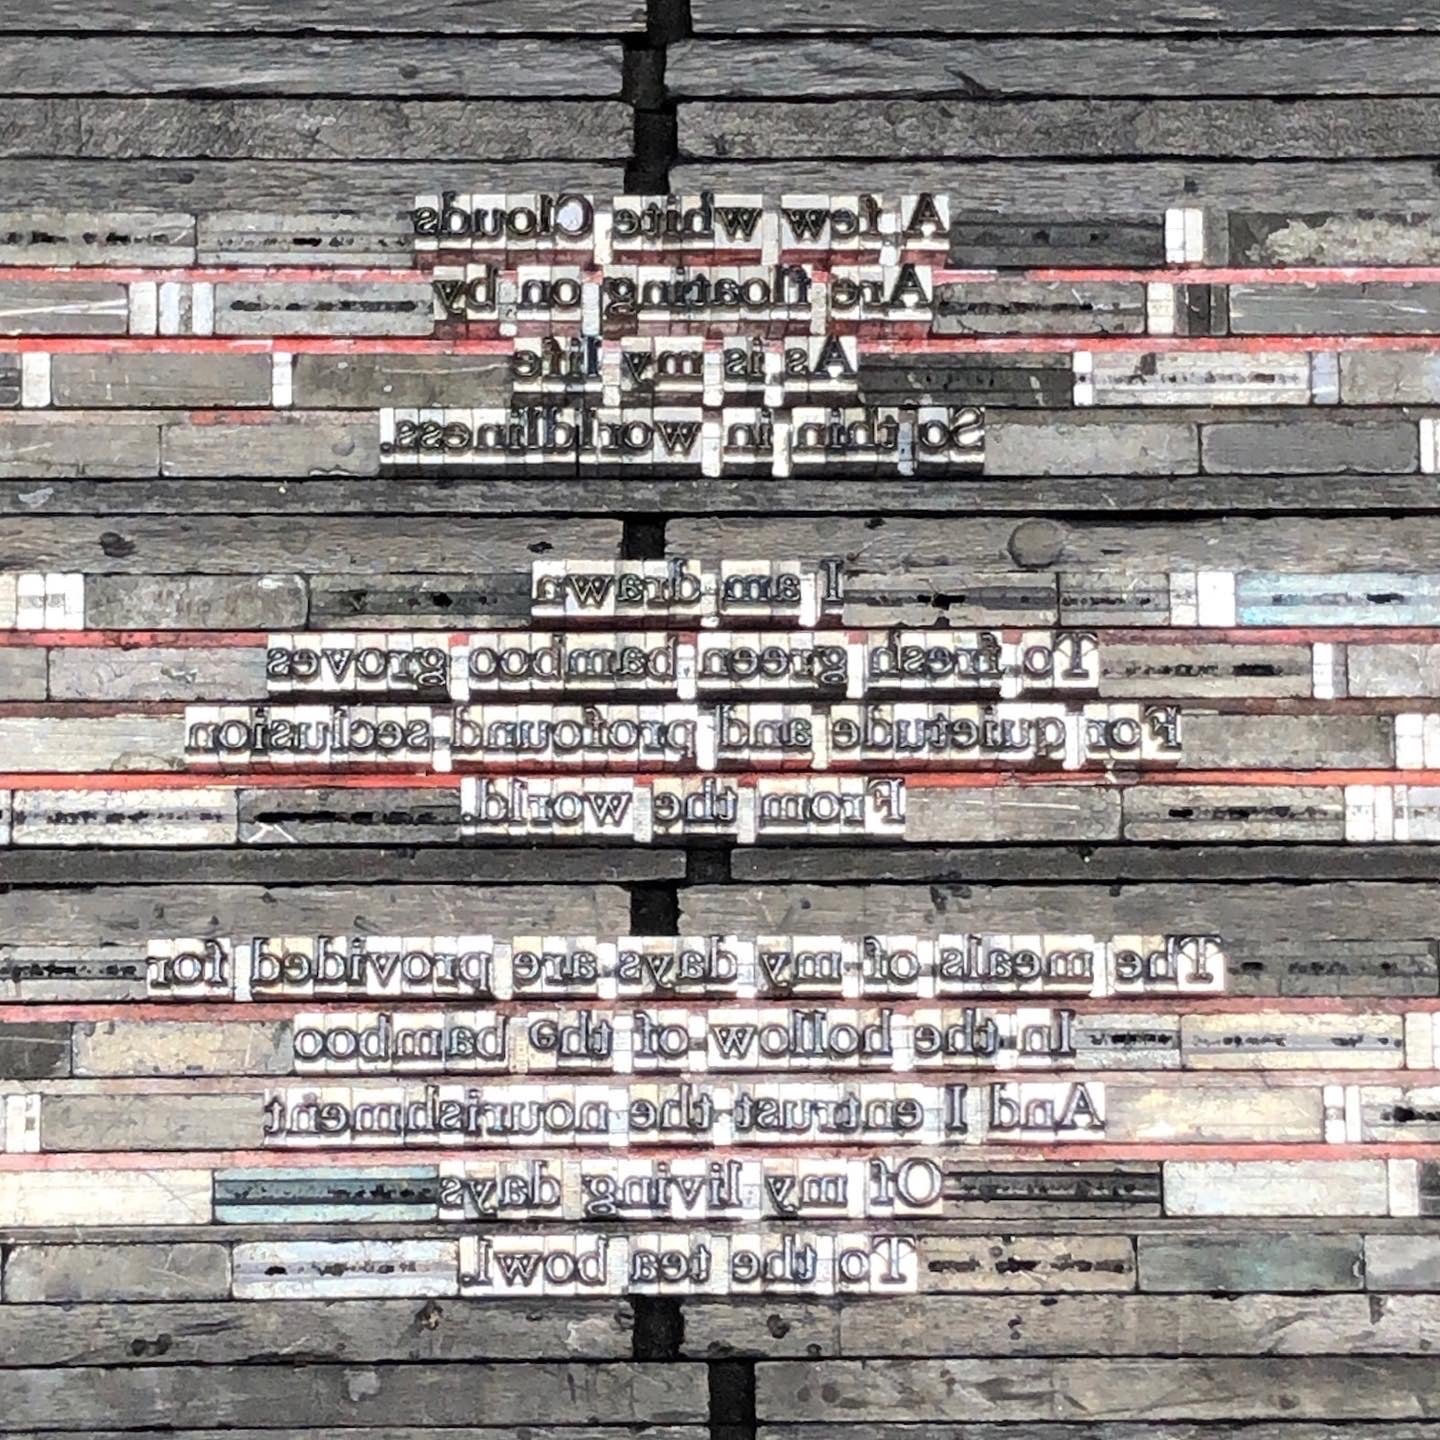 A few white Clouds
Are floating on by
As is my life
So thin in worldliness.
I am drawn
To fresh green bamboo groves
For quietude and profound seclusion
From the world.
The meals of my days are provided for
In the hollow of the bamboo
And I entrust the nourishment
Of my living days
To the tea bowl.